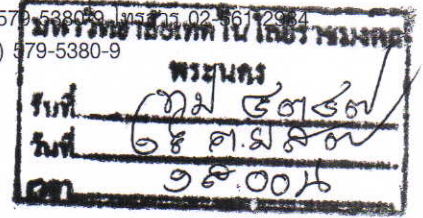 579-5380-9 โทรสาร 02-561-2984
) 579-5380-9
มหาวิทยาลัยเทคโนโลยีราชมงคล
พระนคร
รับที่
วันที่ ๑๕ ต.ค. ๕๗
เวลา ๑๕.๐๐ น